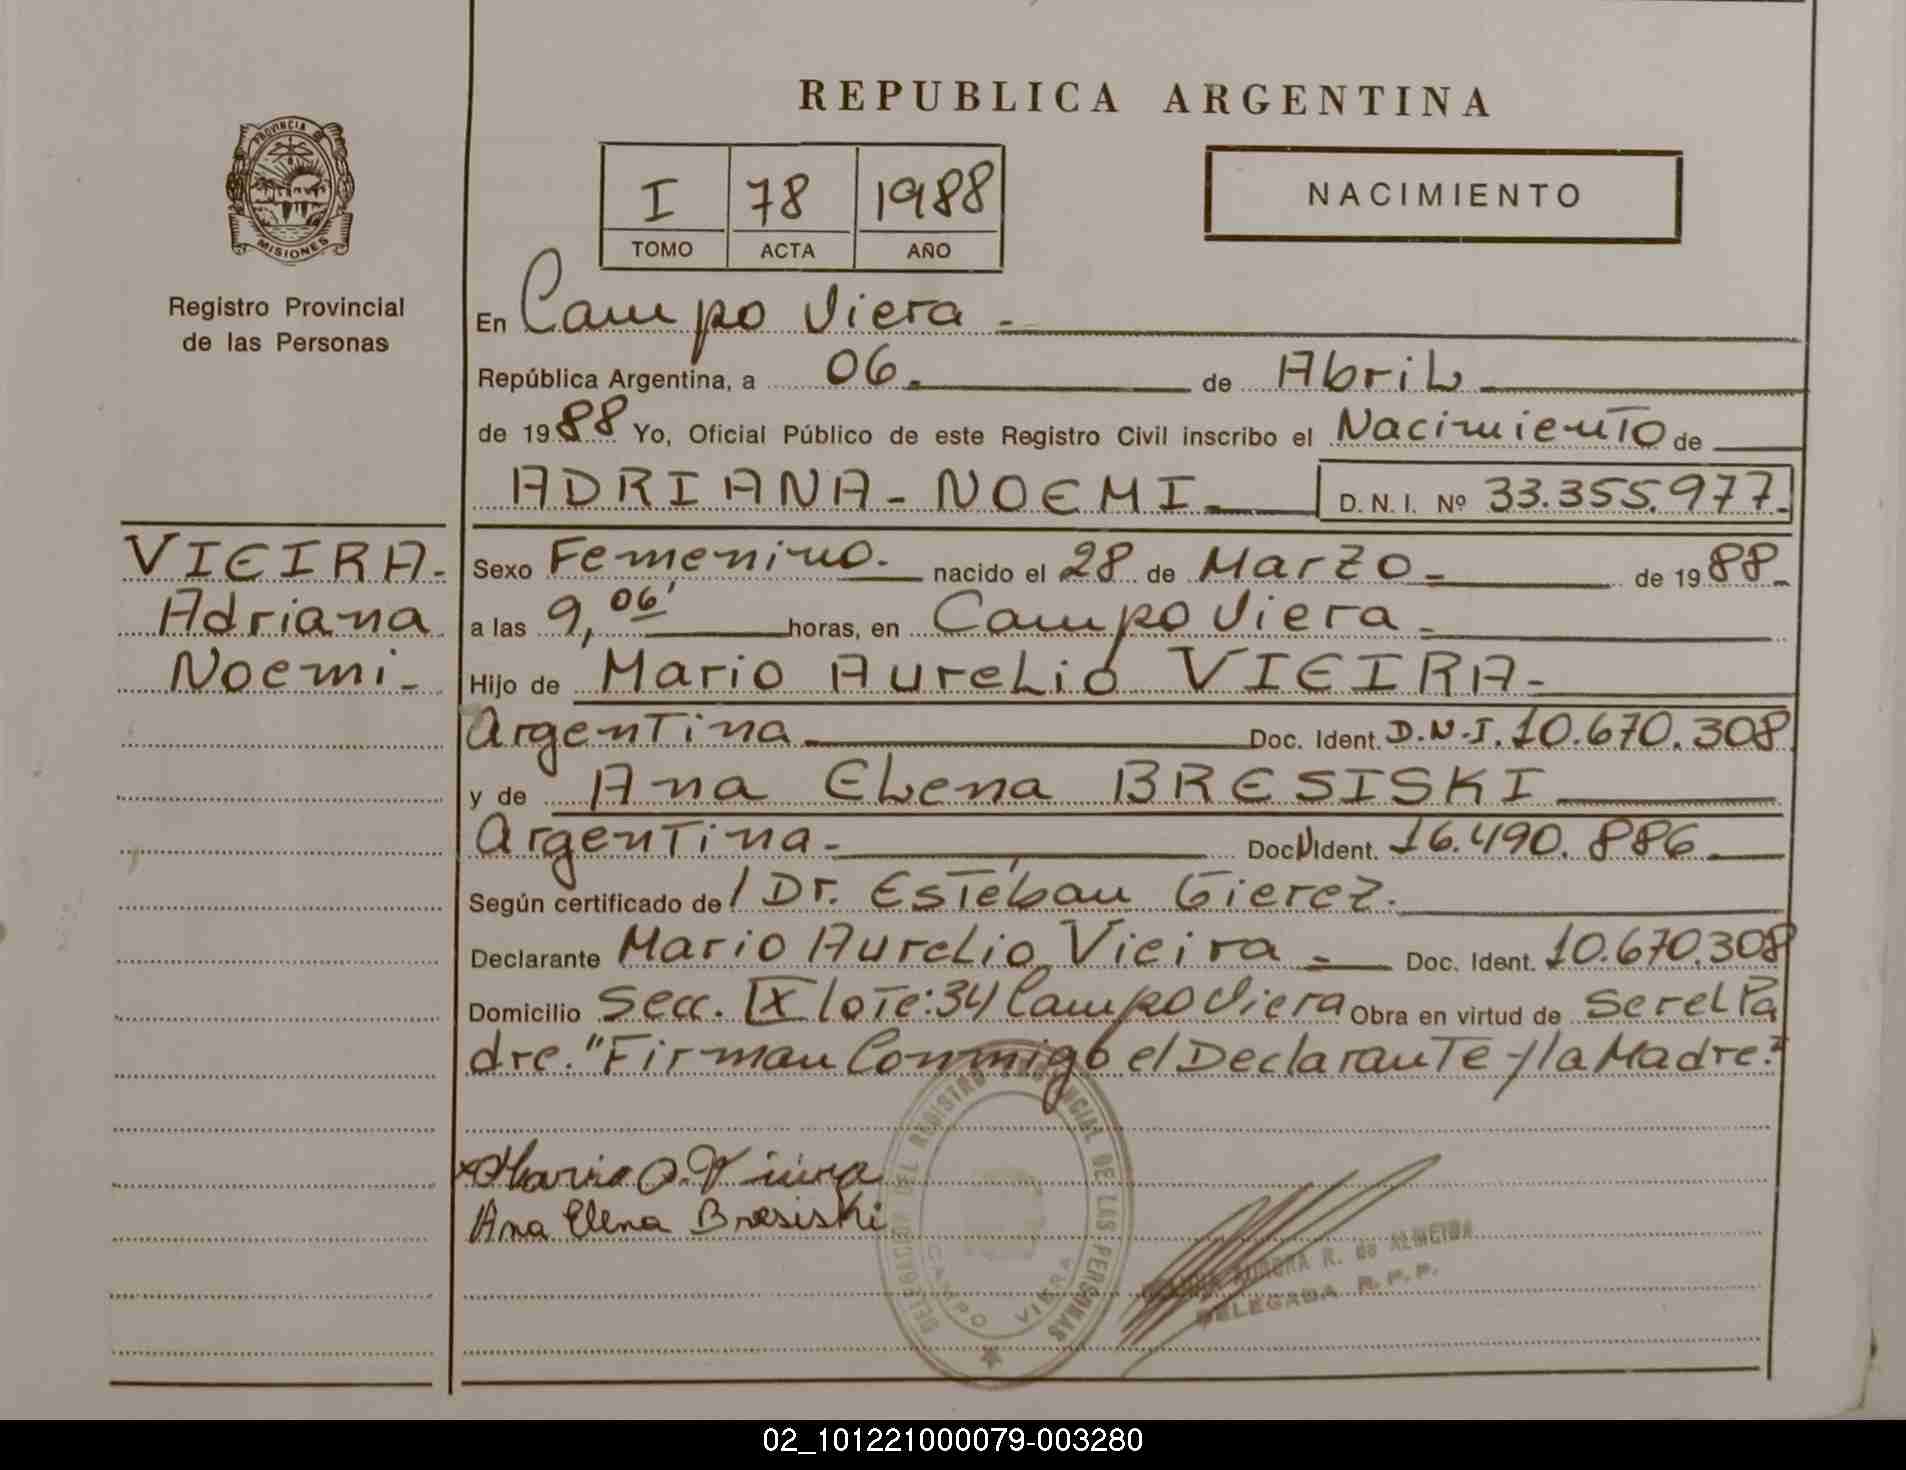 REPUBLICA ARGENTINA
PROVINCIA DE
MISIONES
Registro Provincial
de las Personas
I 78 1988
TOMO ACTA AÑO
NACIMIENTO
En Campo Viera
República Argentina, a 06 de Abril
de 1988 Yo, Oficial Público de este Registro Civil inscribo el Nacimiento de
ADRIANA - NOEMI D. N. I. Nº 33.355.977
VIEIRA
Adriana
Noemi
Sexo Femenino. nacido el 28 de Marzo de 1988
a las 9,06' horas, en Campo Viera
Hijo de Mario Aurelio VIEIRA
Argentina Doc. Ident. D.N.I. 10.670.308
y de Ana Elena BRESISKI
Argentina Doc. Ident. 16.490.886
Según certificado de / Dr. Estéban Gierez.
Declarante Mario Aurelio Vieira Doc. Ident. 10.670.308
Domicilio Secc. IX lote: 34 Campo Viera Obra en virtud de Ser el Pa
dre. "Firman Conmigo el Declarante y la Madre."
Mario A. Vieira
Ana Elena Bresiski
DELEGACION DEL REGISTRO PROVINCIAL DE LAS PERSONAS
CAMPO VIERA
AURORA R. de ALMEIDA
DELEGADA R. P. P.
02_101221000079-003280